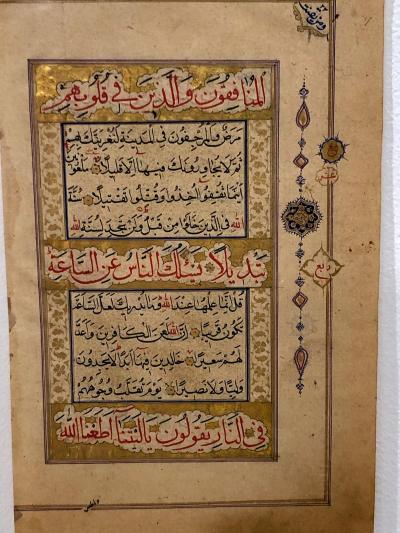 ومن يقنت
المنافقون والذين في قلوبهم
مرض والمرجفون في المدينة لنغرينك بهم
ثم لا يجاورونك فيها الا قليلا ملعونين
اينما ثقفوا اخذوا وقتلوا تقتيلا سنة
الله في الذين خلوا من قبل ولن تجد لسنة الله
تبديلا يسئلك الناس عن الساعة
قل انما علمها عند الله وما يدريك لعل الساعة
تكون قريبا ان الله لعن الكافرين واعد
لهم سعيرا خالدين فيها ابدا لا يجدون
وليا ولا نصيرا يوم تقلب وجوههم
في النار يقولون يا ليتنا اطعنا الله